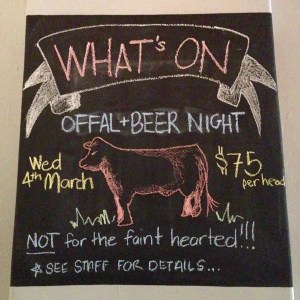 WHAT's ON
OFFAL + BEER NIGHT
Wed
4th March
$75
per head
NOT for the faint hearted!!!
SEE STAFF FOR DETAILS...